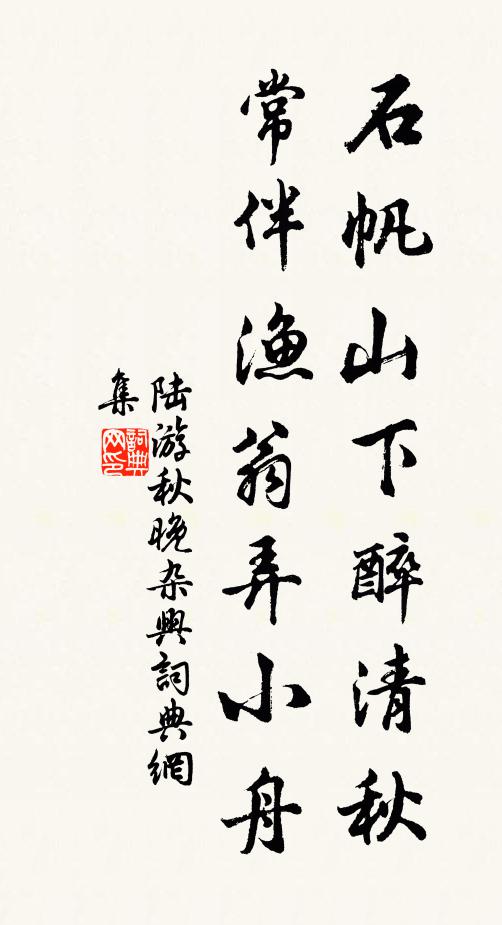 石帆山下醉清秋
常伴漁翁弄小舟
陆游秋晚杂興詞典網
集
詞典网印